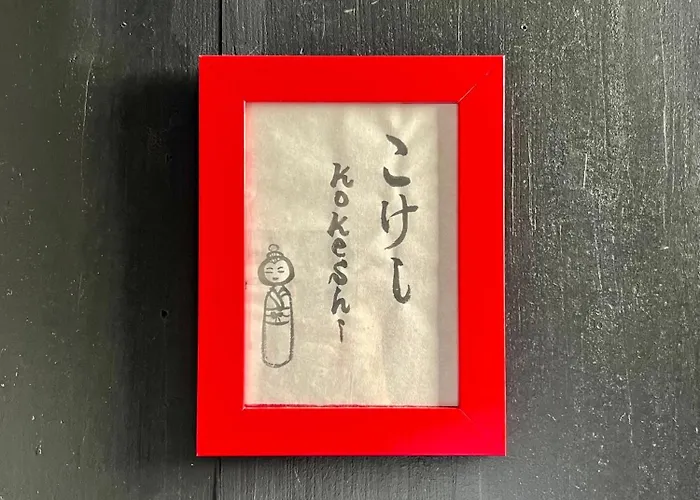 こけし
Kokeshi